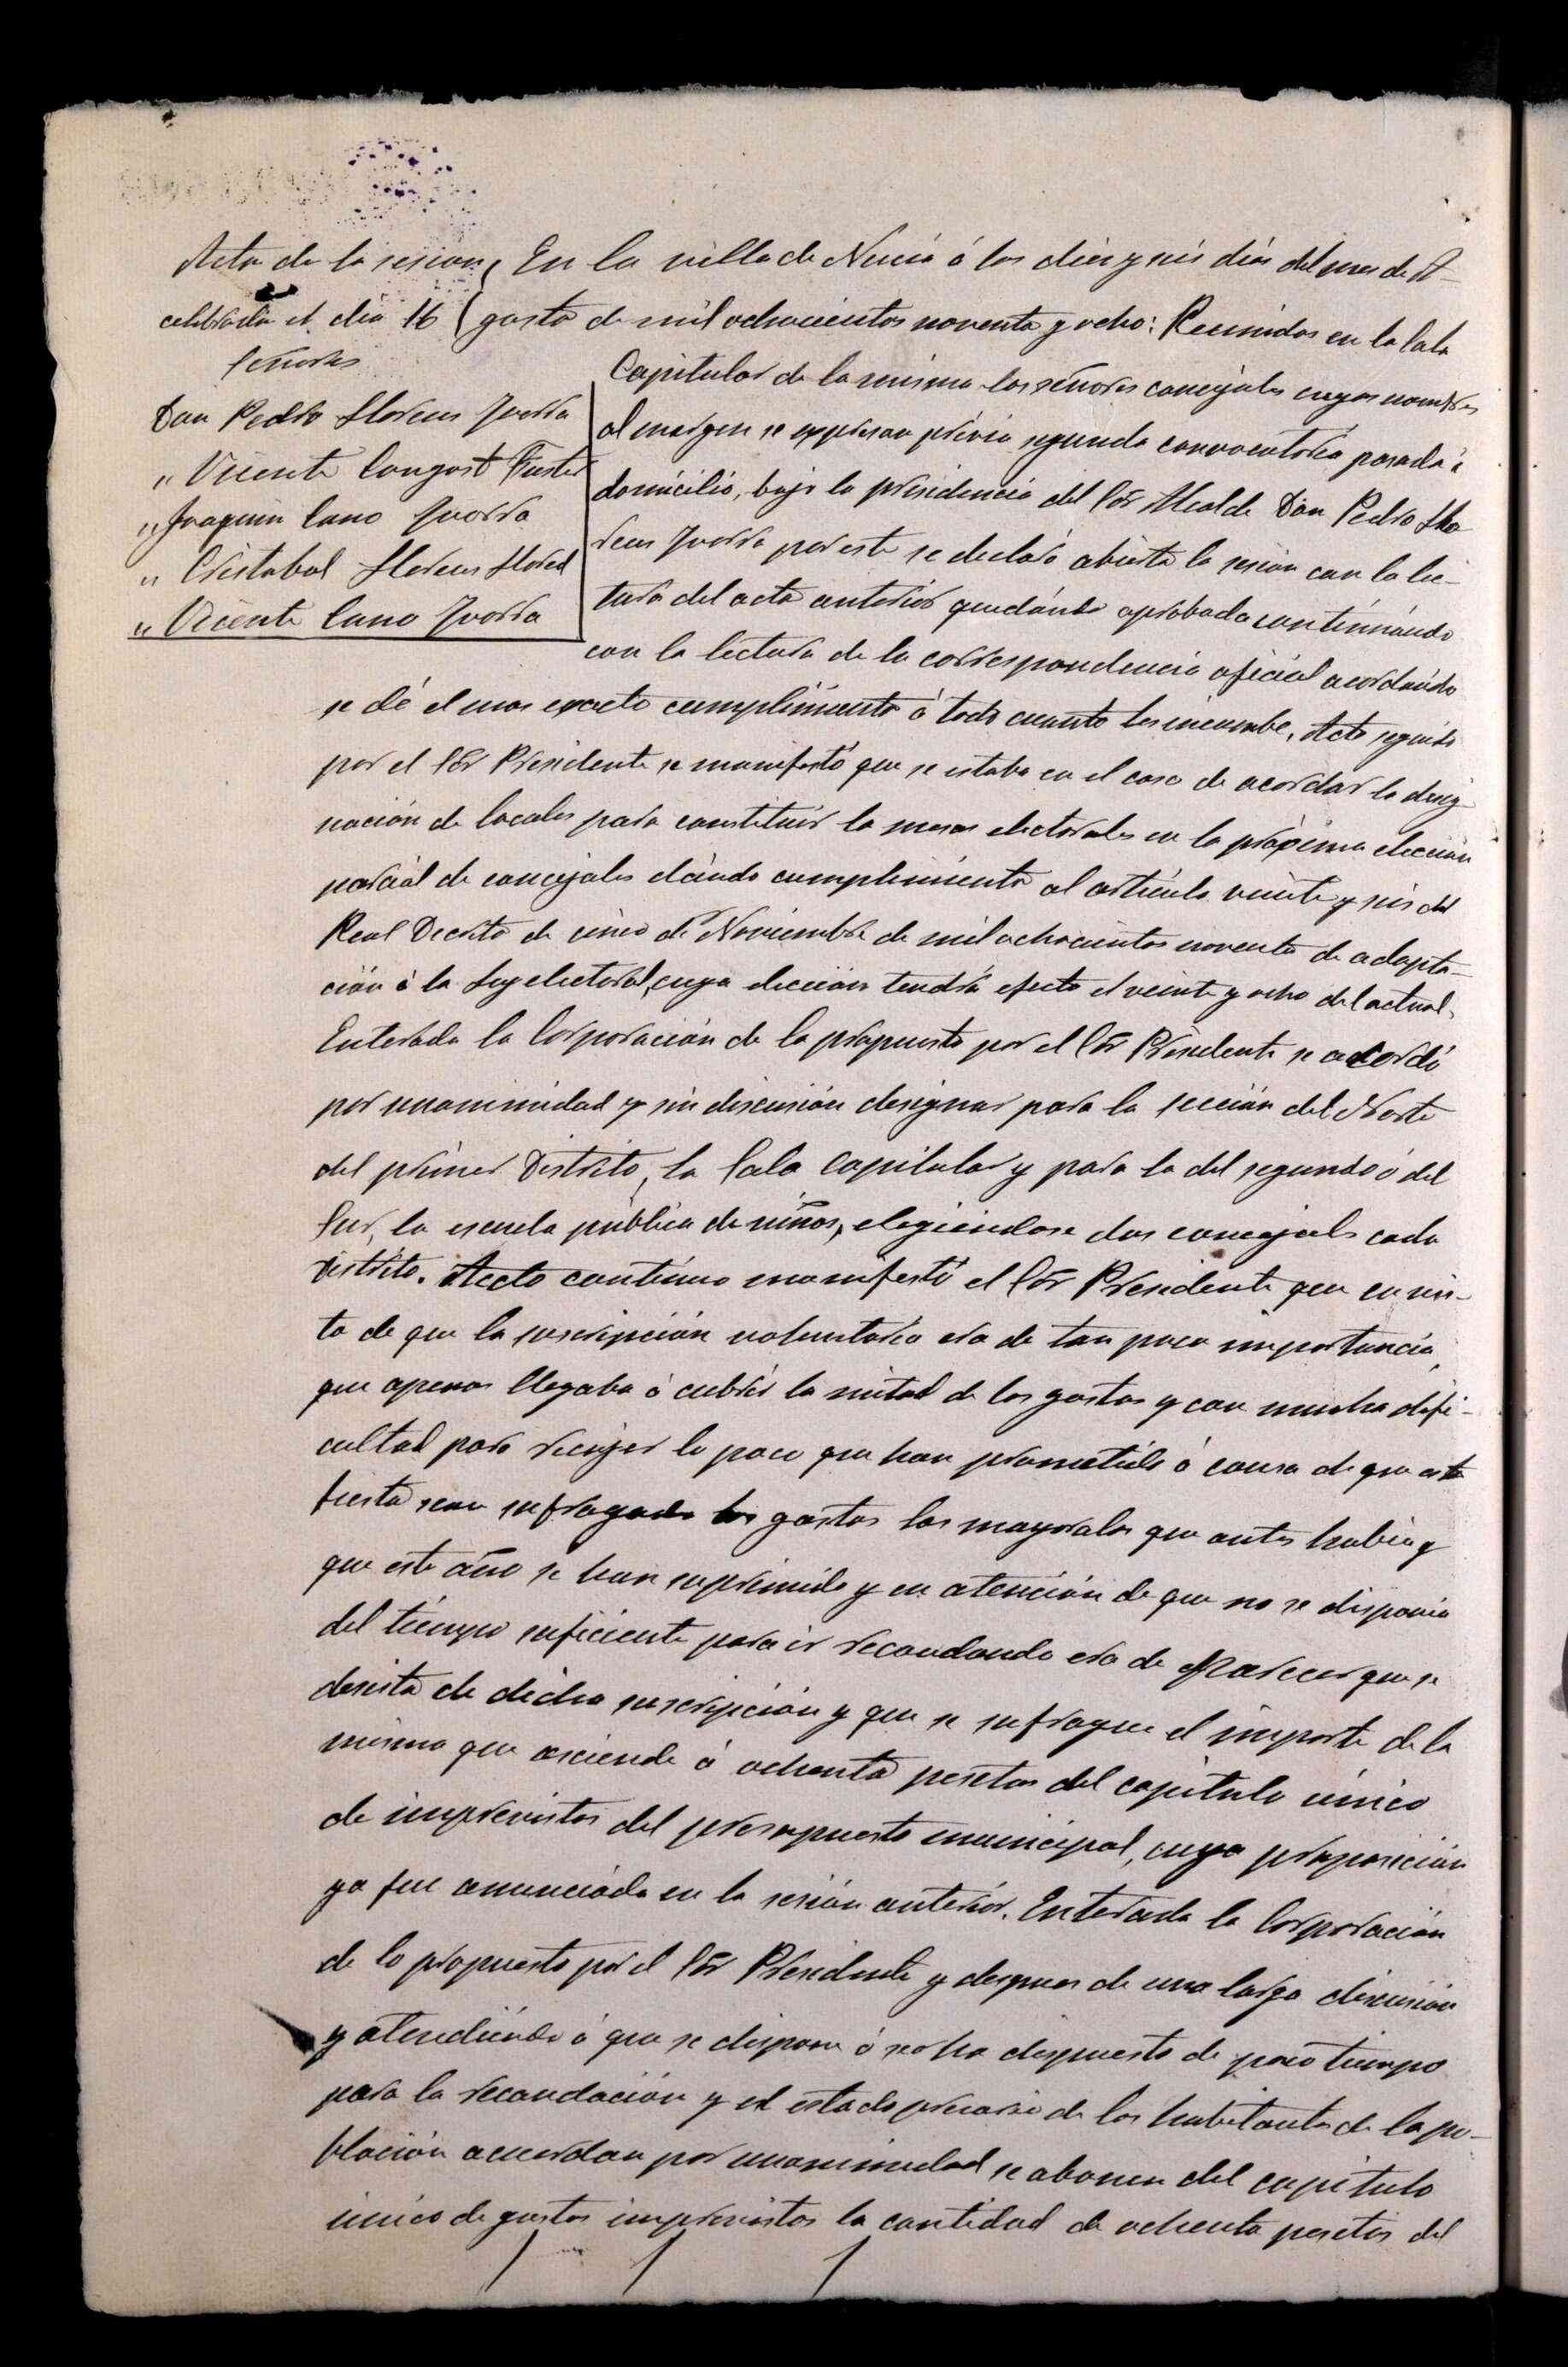 Acta de la sesion
celebrada el dia 16
Señores
Don Pedro Llorens Yvorra
" Vicente Longost Fuster
" Joaquin Cano Yvorra
" Cristobal Llorens Llored
" Vicente Cano Yvorra
En la villa de Nucia á los diez y seis dias del mes de A-
gosto de mil ochocientos noventa y ocho: Reunidos en la Sala
Capitular de la misma los señores concejales cuyos nombres
al margen se expresan prévia segunda convocatoria pasada á
domicilio, bajo la presidencia del Sor Alcalde Don Pedro Llo-
rens Yvorra por este se declaró abierta la sesion con la lec-
tura del acta anterior quedando aprobada continuando
con la lectura de la correspondencia oficial acordando
se dé el mas exacto cumplimiento á todo cuanto les incumbe. Acto seguido
por el Sor Presidente se manifestó que se estaba en el caso de acordar la desig-
nación de locales para constituir la mesas electorales en la próxima elección
parcial de concejales dando cumplimiento al artículo veinte y seis del
Real Decreto de cinco de Noviembre de mil ochocientos noventa de adapta-
ción á la Ley electoral, cuya elección tendrá efecto el veinte y ocho del actual.
Enterada la Corporación de lo propuesto por el Sor Presidente se acordó
por unanimidad y sin discusión designar para la sección del Norte
del primer Distrito, la Sala Capitular y para la del segundo ó del
Sur, la escuela pública de niños, elegiendose dos concejals cada
distrito. Acto contínuo manifestó el Sor Presidente que en vis-
ta de que la suscripción voluntaria era de tan poca importancia,
que apenas llegaba á cubrir la mitad de los gastos y con mucha difi-
cultad para recojer lo poco que han prometido á causa de que esta
fiesta sean sufragado los gastos los mayorales que antes habia y
que este año se han suprimido y en atención de que no se disponia
del tiempo suficiente para ir recaudando era de parecer que se
desista de dicha suscripción y que se sufrague el importe de la
misma que asciende á ochenta pesetas del capítulo único
de imprevistos del presupuesto municipal, cuya proposición
ya fue anunciada en la sesión anterior. Enterada la Corporación
de lo propuesto por el Sor Presidente y despues de una larga discusión
y atendiendo á que se dispone ó se ha dispuesto de poco tiempo
para la recaudación y el estado precario de los habitantes de la po-
blación acuerdan por unanimidad se abonen del capitulo
único de gastos imprevistos la cantidad de ochenta pesetas del